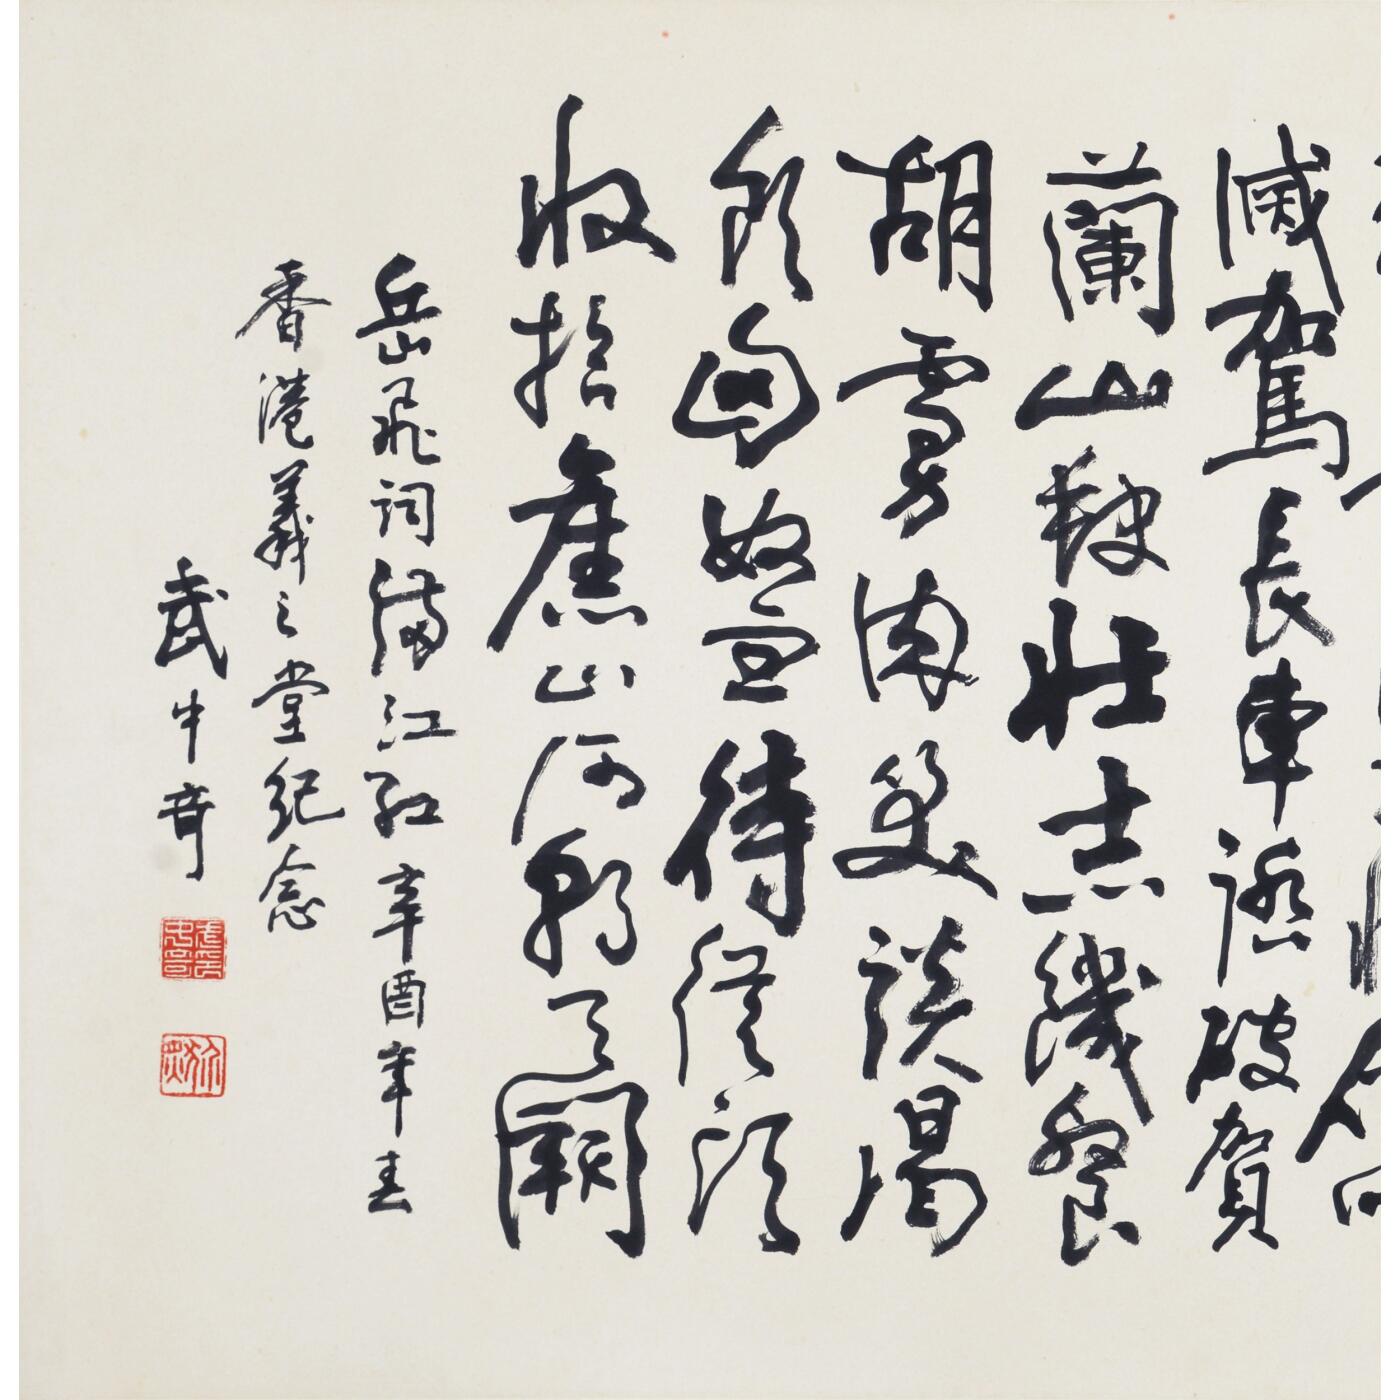 滅駕長車踏破賀
蘭山缺壯志饑餐
胡虜肉笑談渴
飲匈奴血待從頭
收拾舊山河朝天闕
岳飛詞滿江紅 辛酉年春
香港羲之堂紀念
武中奇